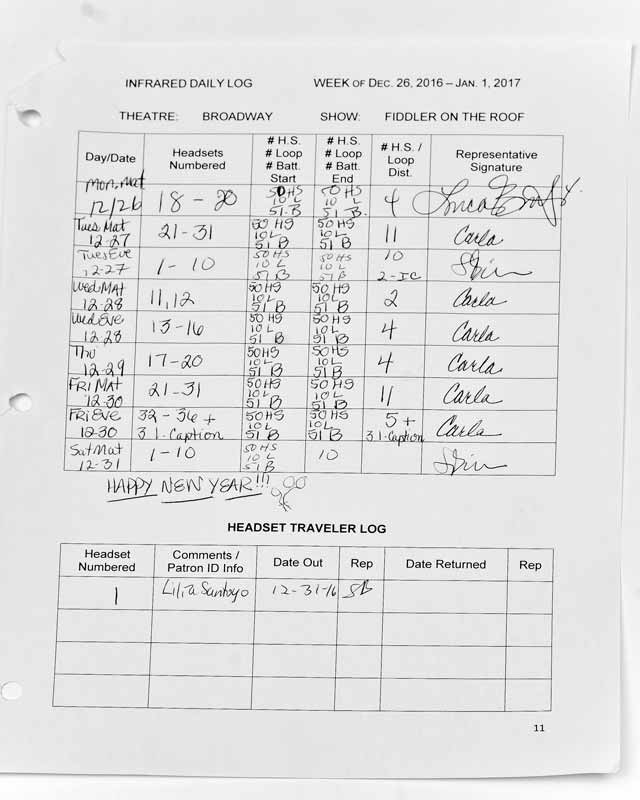 INFRARED DAILY LOG WEEK OF DEC. 26, 2016 – JAN. 1, 2017
THEATRE: BROADWAY SHOW: FIDDLER ON THE ROOF
Day/Date Headsets Numbered # H.S. # Loop # Batt. Start # H.S. # Loop # Batt. End # H.S. / Loop Dist. Representative Signature
Mon. Mat 12/26 18 - 20 50 HS 10 L 51 B 50 HS 10 L 51 B. 4
Tues Mat 12-27 21-31 50 HS 10L 51 B 50 HS 10L 51 B 11 Carla
Tues Eve 12-27 1-10 50 HS 10 L 51 B 50 HS 10 L 51 B 10 2-IC
Wed MAT 12-28 11,12 50 HS 10 L 51 B 50HS 10 L 51 B 2 Carla
Wed Eve 12-28 13-16 50 HS 10 L 51 B 50HS 10L 51 B 4 Carla
Thu 12-29 17-20 50HS 10 L 51 B 50HS 10 L 51 B 4 Carla
FRI MAT 12-30 21-31 50HS 10L 51 B 50HS 10L 51 B 11 Carla
FRI Eve 12-30 32-36 + 31-Caption 50HS 10L 51 B 50HS 10L 51 B 5 + 31-Caption Carla
Sat Mat 12-31 1-10 50 HS 10 L 51 B 10
HAPPY NEW YEAR!!!
HEADSET TRAVELER LOG
Headset Numbered Comments / Patron ID Info Date Out Rep Date Returned Rep
1 Lilia Santoyo 12-31-16 SB
11